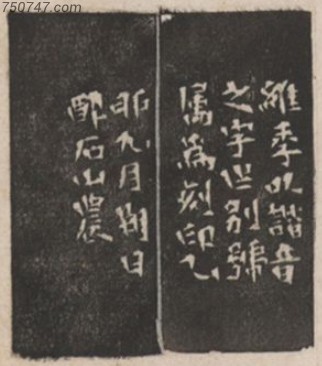 750747.com
維季以諧音
之字作別號
属爲刻印乙
卯九月朔日
酔石山農